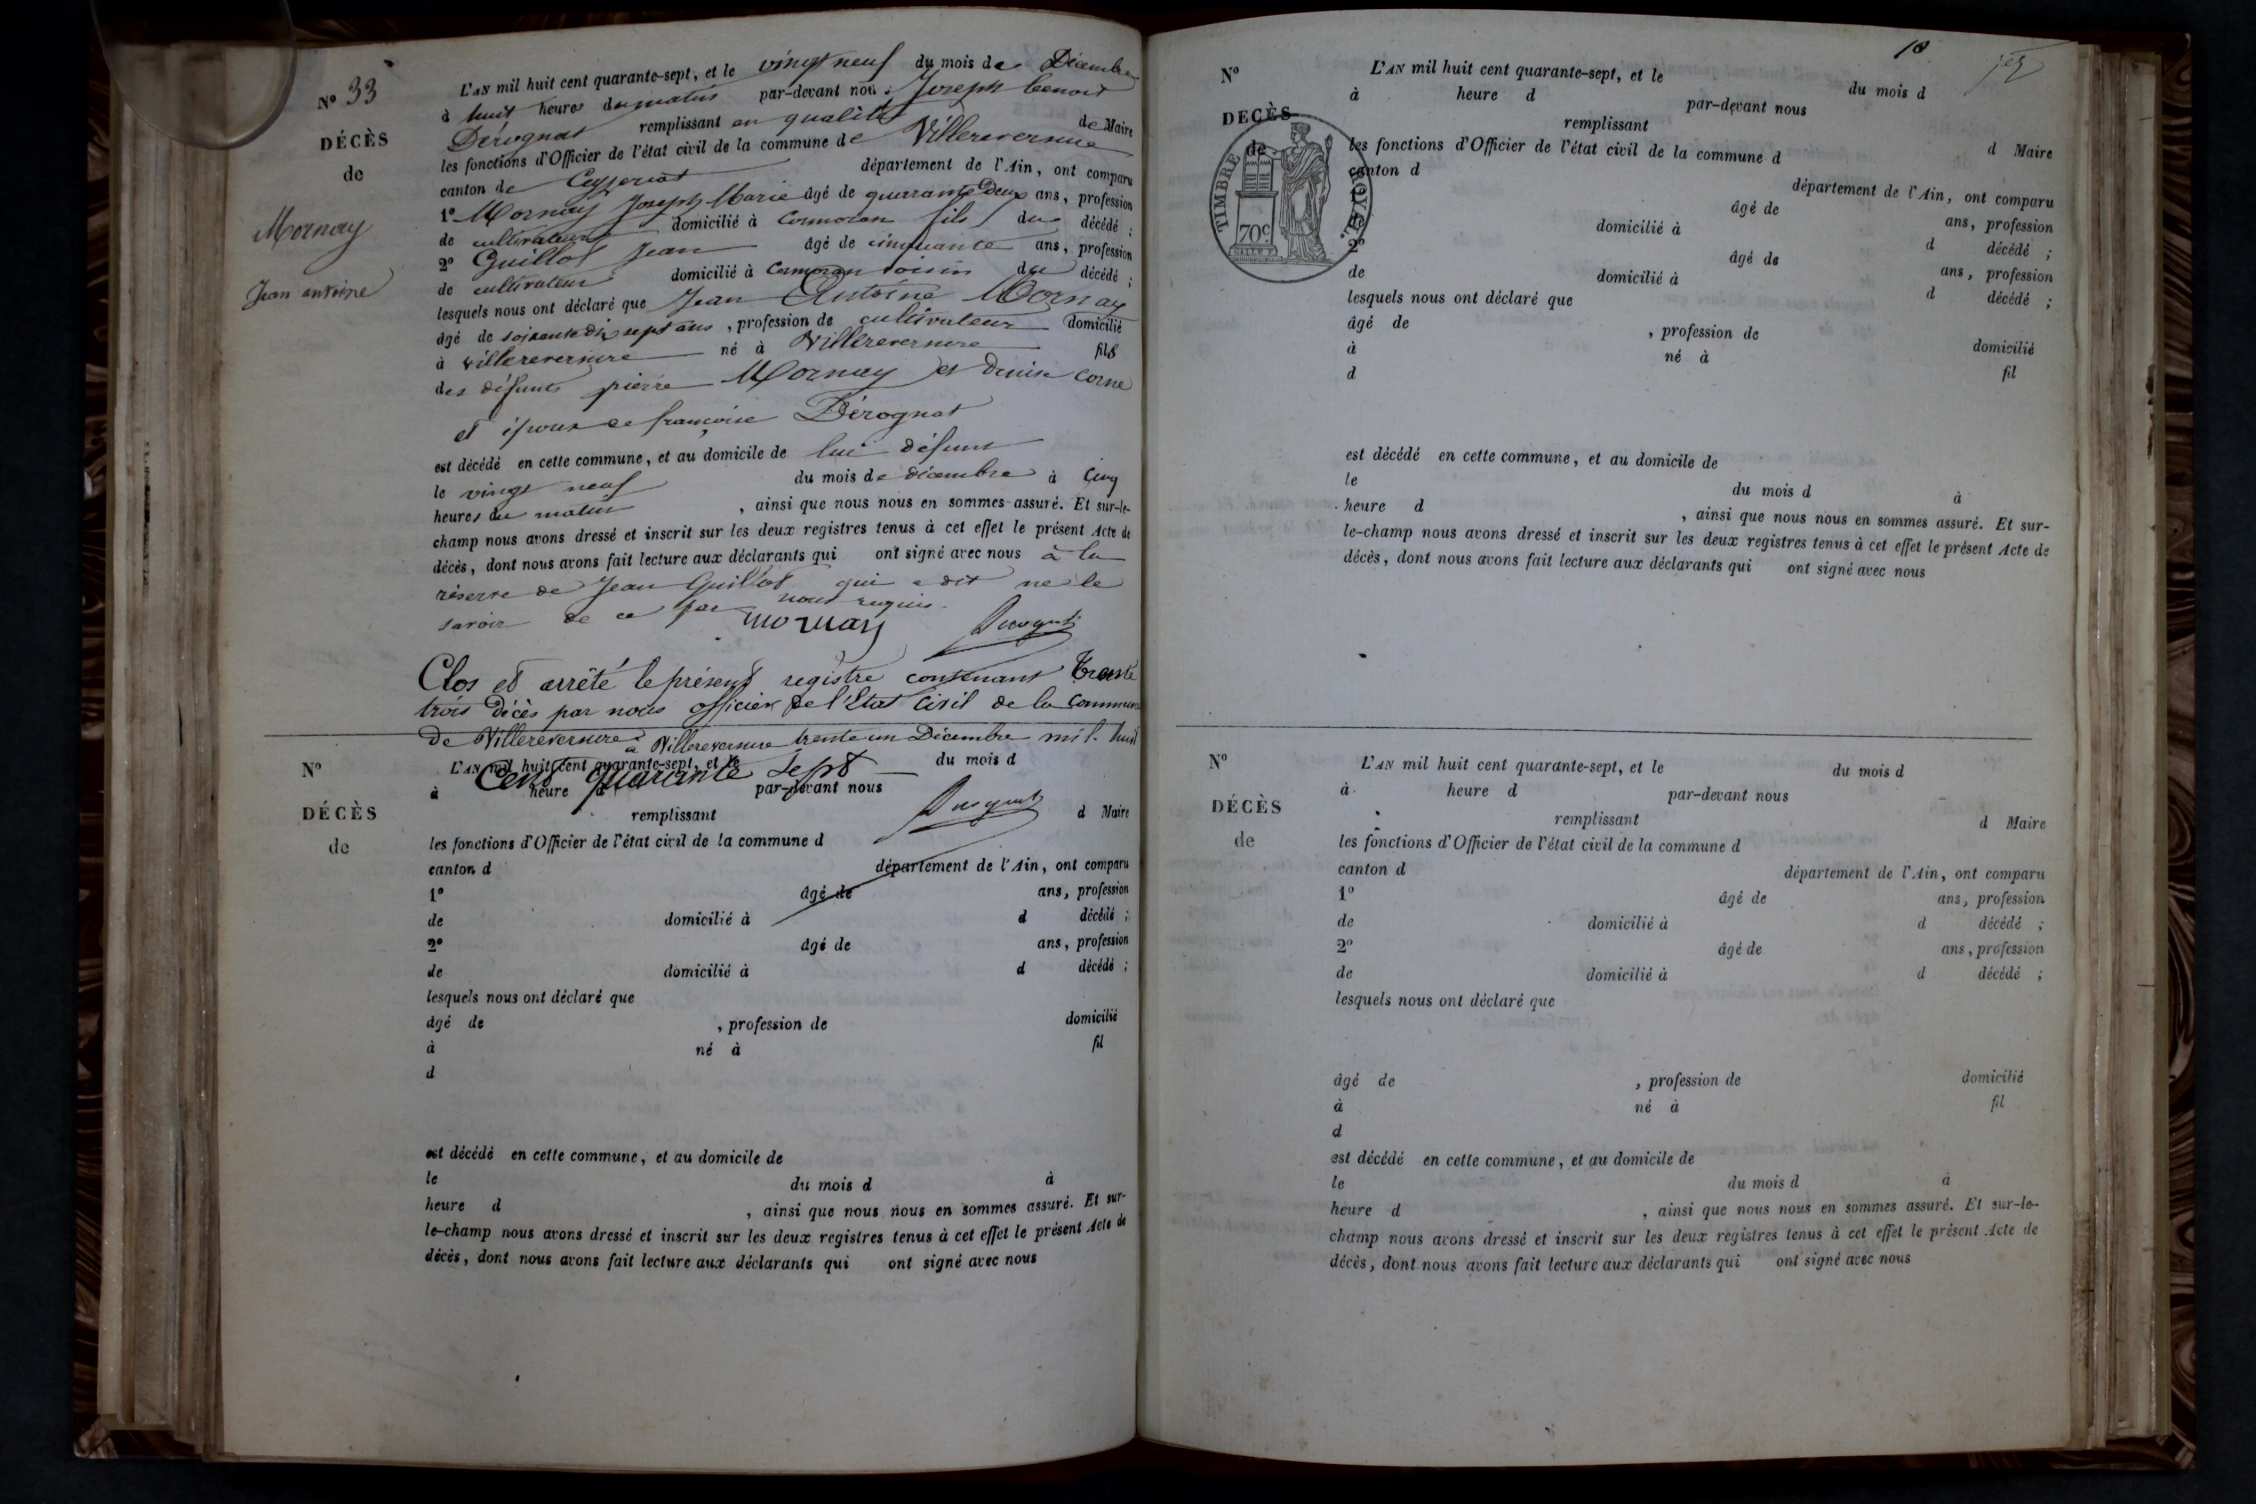 N° 33
DÉCÈS
de
Mornay
Jean antoine
L'AN mil huit cent quarante-sept, et le vingt neuf du mois de Décembre
à huit heures du matin par-devant nous Joseph benoit
Dérognat remplissant en qualité de Maire
les fonctions d'Officier de l'état civil de la commune de Villereversure
canton de Ceyzeriat département de l'Ain, ont comparu
1° Mornay Joseph Marie âgé de quarante deux ans, profession
de cultivateur domicilié à Cormoran fils du décédé ;
2° Guillot Jean âgé de cinquante ans, profession
de cultivateur domicilié à Cormoran voisin du décédé ;
lesquels nous ont déclaré que Jean Antoine Mornay
âgé de soixante dix sept ans, profession de cultivateur domicilié
à villereversure né à Villereversure fils
des défunts pierre Mornay et denise corne
et époux de françoise Dérognat
est décédé en cette commune, et au domicile de lui défunt
le vingt neuf du mois de décembre à Cinq
heures du matin, ainsi que nous nous en sommes assuré. Et sur-le-
champ nous avons dressé et inscrit sur les deux registres tenus à cet effet le présent Acte de
décès, dont nous avons fait lecture aux déclarants qui ont signé avec nous à la
réserve de Jean Guillot qui a dit ne le
savoir de ce par nous requis.
mornay
Clos et arrêté le présent registre contenant trente
trois décès par nous officier de l'Etat Civil de la commune
de Villereversure à Villereversure trente un Décembre mil huit
Cent quarante sept
N°
DÉCÈS
de
L'AN mil huit cent quarante-sept, et le du mois d
à heure d par-devant nous
remplissant d Maire
les fonctions d'Officier de l'état civil de la commune d
canton d département de l'Ain, ont comparu
1° âgé de ans, profession
de domicilié à d décédé ;
2° âgé de ans, profession
de domicilié à d décédé ;
lesquels nous ont déclaré que
âgé de , profession de domicilié
à né à fil
d
est décédé en cette commune, et au domicile de
le du mois d à
heure d , ainsi que nous nous en sommes assuré. Et sur-
le-champ nous avons dressé et inscrit sur les deux registres tenus à cet effet le présent Acte de
décès, dont nous avons fait lecture aux déclarants qui ont signé avec nous
18
N°
DÉCÈS
de
TIMBRE ROYAL
70c
L'AN mil huit cent quarante-sept, et le du mois d
à heure d par-devant nous
remplissant d Maire
les fonctions d'Officier de l'état civil de la commune d
canton d département de l'Ain, ont comparu
âgé de ans, profession
domicilié à d décédé ;
2° âgé de ans, profession
de domicilié à d décédé ;
lesquels nous ont déclaré que
âgé de , profession de domicilié
à né à fil
d
est décédé en cette commune, et au domicile de
le du mois d à
heure d , ainsi que nous nous en sommes assuré. Et sur-
le-champ nous avons dressé et inscrit sur les deux registres tenus à cet effet le présent Acte de
décès, dont nous avons fait lecture aux déclarants qui ont signé avec nous
N°
DÉCÈS
de
L'AN mil huit cent quarante-sept, et le du mois d
à heure d par-devant nous
remplissant d Maire
les fonctions d'Officier de l'état civil de la commune d
canton d département de l'Ain, ont comparu
1° âgé de ans, profession
de domicilié à d décédé ;
2° âgé de ans, profession
de domicilié à d décédé ;
lesquels nous ont déclaré que
âgé de , profession de domicilié
à né à fil
d
est décédé en cette commune, et au domicile de
le du mois d à
heure d , ainsi que nous nous en sommes assuré. Et sur-le-
champ nous avons dressé et inscrit sur les deux registres tenus à cet effet le présent Acte de
décès, dont nous avons fait lecture aux déclarants qui ont signé avec nous